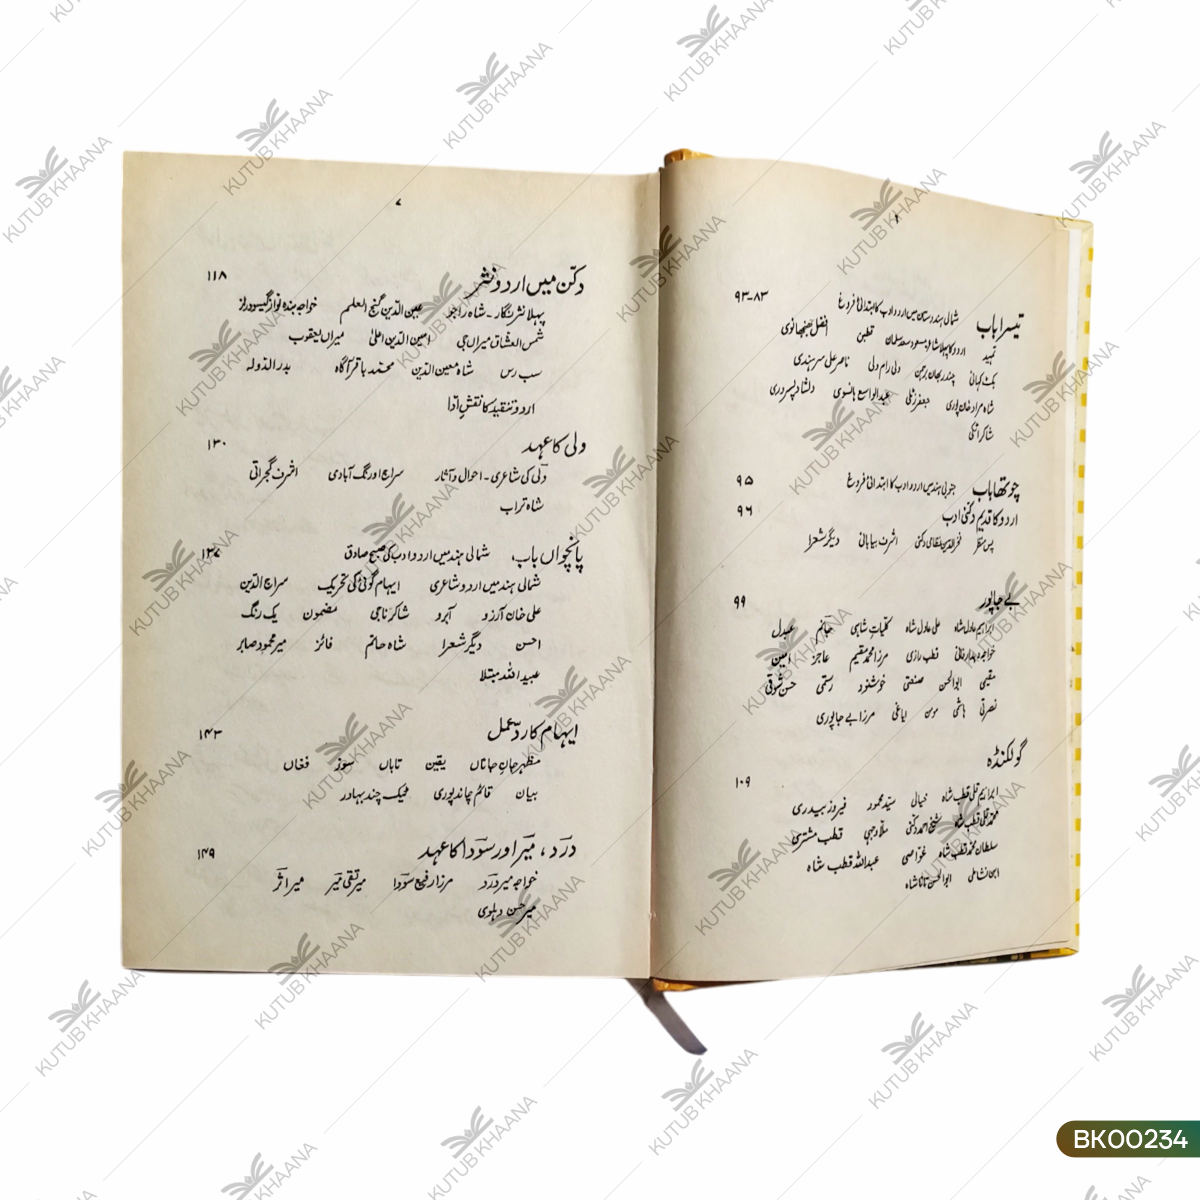 ۶
تیسرا باب شمالی ہندوستان میں اردو ادب کا ابتدائی فروغ ۸۳-۹۳
تمہید اردو کا پہلا شاعر مسعود سعد سلمان قطبن افضل جھنجھانوی
بکٹ کہانی چندر بھان برہمن ولی رام ولی ناصر علی سرہندی
شاہ مراد خان پوری جعفر زٹلی عبدالواسع ہانسوی دلشاد پسروری
شاکر اٹکی
چوتھا باب جنوبی ہند میں اردو ادب کا ابتدائی فروغ ۹۵
اردو کا قدیم دکنی ادب ۹۶
پس منظر فخرالدین نظامی دکنی اشرف بیابانی دیگر شعرا
بے جاپور ۹۹
ابراہیم عادل شاہ علی عادل شاہ کلیاتِ شاہی جانم عبدل
خواجہ دیدار فانی قطب رازی مرزا محمد مقیم عاجز امین
مقیمی ابوالحسن صنعتی خوشنود رستمی حسن شوقی
نصرتی ہاشمی مومن ایاغی مرزا بے جاپوری
گولکنڈہ ۱۰۹
ابراہیم قلی قطب شاہ خیالی سید محمود فیروز بیدری
محمد قلی قطب شاہ شیخ احمد دکنی ملا وجہی قطب مشتری
سلطان محمد قطب شاہ غواصی عبداللہ قطب شاہ
ابن نشاطی ابوالحسن تانا شاہ
۷
دکن میں اردو نثر ۱۱۸
پہلا نثر نگار۔ شاہ راجو عین الدین گنج العلم خواجہ بندہ نواز گیسودراز
شمس العشاق میراں جی امین الدین اعلیٰ میراں یعقوب
سب رس شاہ معین الدین محمد باقر آگاہ بدرالدولہ
اردو تنقید کا نقشِ اوّل
ولی کا عہد ۱۳۰
ولی کی شاعری۔ احوال و آثار سراج اورنگ آبادی اشرف گجراتی
شاہ تراب
پانچواں باب، شمالی ہند میں اردو ادب کی صبح صادق ۱۳۷
شمالی ہند میں اردو شاعری ایہام گوئی کی تحریک سراج الدین
علی خان آرزو آبرو شاکر ناجی مضمون یک رنگ
احسن دیگر شعرا شاہ حاتم فائز میر محمود صابر
عبیداللہ مبتلا
ایہام کا ردِّ عمل ۱۴۳
مظہر جان جاناں یقین تاباں سوز فغاں
بیان قائم چاندپوری ٹیک چند بہادر
درد، میر اور سودا کا عہد ۱۴۹
خواجہ میر درد مرزا رفیع سودا میر تقی میر میر اثر
میر حسن دہلوی
KUTUB KHAANA
BK00234